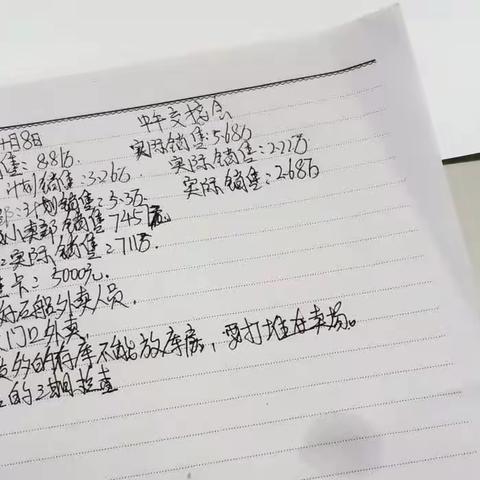 中午交接会
十月8日
售: 8.8万 实际销售:5.68万
计划销售:3.26万 实际销售:2.22万
部:计划销售:3.3万 实际销售:2.68万
小卖部销售745元
:实际销售:711万
卡:5000元.
好后船外卖人员.
门口外卖,
的库存不能放库房,要打堆在卖场。
的三期检查